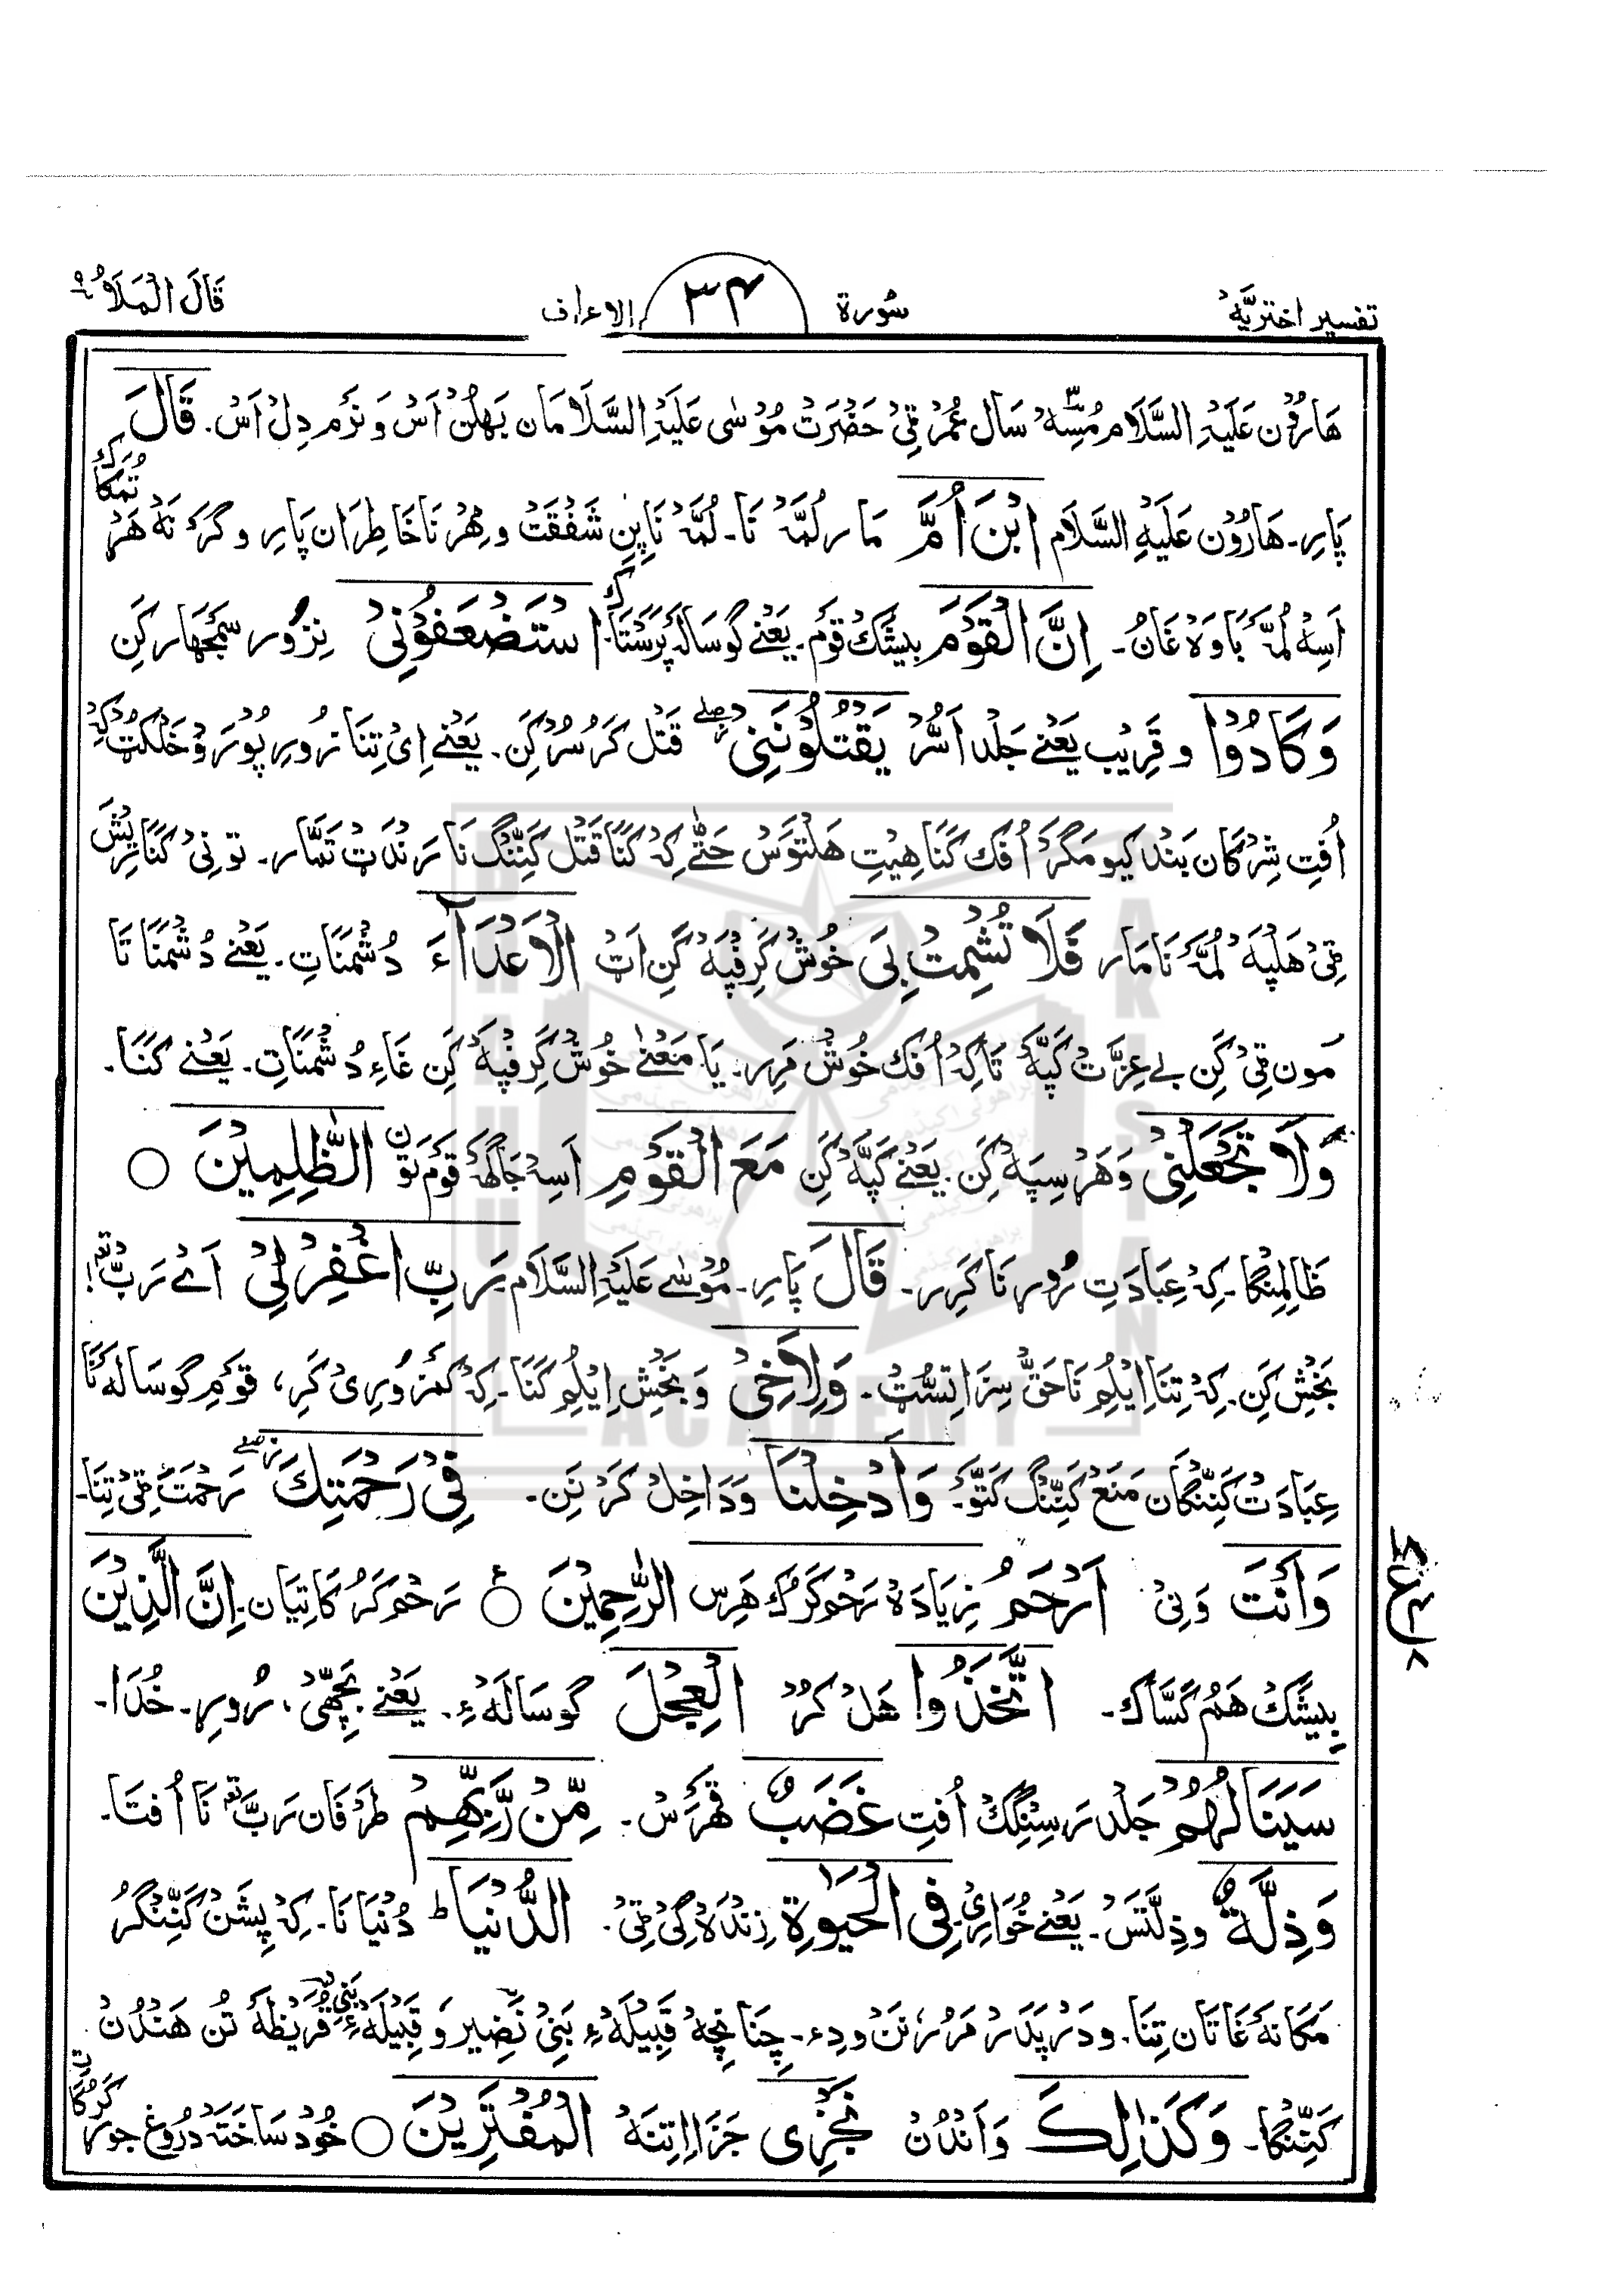 تفسیر اختریَّہ سُورۃ ۳۴ الاعراف قَالَ الْمَلَاُ ۹
ھَارُوْن عَلَیْہِ السَّلَام مُسِّہْ سَال عُمُرْ ٹِیْ حَضْرَتْ مُوْسٰی عَلَیْہِ السَّلَامَان بَھلُنْ اَسْ وَ نَرَم دِلْ اَسْ۔ قَالَ
پَارِ۔ ھَارُوْن عَلَیْہِ السَّلَام ابْنَ اُمَّ مَار لُمَّہْ نَا۔ لُمَّہْ نَا پِنِ شَفْقَتْ و مِہْرْ نَا خَاطِرَان پَارِ و گَرْنَہْ ھَرْ تُمکَا
اَسِہْ لُمَّہْ بَاوَہ غَانُ۔ اِنَّ الْقَوْمَ بیشَکْ قَوْم۔ یَعْنِے گوسَالَہ پَرَسْتَا۔ اسْتَضْعَفُوْنِیْ نِزُور سَمْجھَار کَنِ
وَکَادُوْا و قَرِیْب یَعْنے جَلْد اَسُّرْ یَقْتُلُوْنَنِیْ قَتْل کَرُسُرْ کَنِ۔ یَعْنے اِیْ تِنَا زُورِ پُورَہ وْ خَلْکُتْ کِہ
اُفتِ شِرْکَان بَنْد کیو مَگَرْ اُفک کَنَا ھِیتِ ھَلْتَوَسْ حَتّٰے کِہْ کَنَا قَتْل کَنِّنْگ نَا رَنْدَتْ تَمَّار۔ تو نِیْ کَنَا رِیْش
ٹِیْ ھَلْپَہ لُمَّہ نَا مَار فَلَا تُشْمِتْ بِیَ خُوْش کَرِفْپَہْ کَنِ اَتْ الْاَعْدَآءَ دُشْمَنَاتِ۔ یَعْنے دُشْمَنَا تَا
مُون ٹِیْ کَنِ بے عِزَّتْ کَپَّہْ تَاکِہْ اُفک خُوْش مَرِر۔ یَا مَعْنٰے خُوْش کَرِفْپَہْ کَنِ غَاءِ دُشْمَنَاتِ۔ یَعْنے کَنَا۔
وَلَا تَجْعَلْنِیْ وَھَرْسِپَہْ کَنِ۔ یَعْنے کَپَّہْ کَنِ مَعَ الْقَوْمِ اَسِہْ جَاگَہْ قَوْم تَوْن الظّٰلِمِیْنَ ○
ظَالِمِنگَا۔ کِہْ عِبَادَتِ زُور نَا کَرِر۔ قَالَ پَارِ۔ مُوْسٰے عَلَیْہِ السَّلَام رَبِّ اغْفِرْ لِیْ اَے رَبّ!
بَخْش کَنِ۔ کِہْ تِنَا اِیْلُمِ نَاحَقّ سِزَا تِسُّٹْ۔ وَلِاَخِیْ وَ بَخْش اِیْلُمِ کَنَا۔ کِہْ کَمْزُورِیْ کَرِ، قَوْمِ گوسَالَہ نَا
عِبَادَتْ کَنِّنْگَان مَنَعْ کَنِّنْگ کَتَّوْ۔ وَاَدْخِلْنَا وَ دَاخِلْ کَرْ نَنِ۔ فِیْ رَحْمَتِکَ رَحْمَتْ ٹِیْ تِنَا۔
وَاَنْتَ وَنِیْ اَرْحَمُ زِیَادَہ رَحْم کَرُکْ ھَرِس الرّٰحِمِیْنَ ○ رَحْم کَرُکَاتِیَان۔ اِنَّ الَّذِیْنَ
بِیشَکْ ھَمْ کَسَّاک۔ اتَّخَذُوا ھَلْ کَرُرْ الْعِجْلَ گوسَالَہْ ءِ۔ یَعْنے بَچھِّیْ، زُورِ۔ خُدَا۔
سَیَنَالُھُمْ جَلْد رَسِنْگِکْ اُفتِ غَضَبٌ قَہْرَسْ۔ مِّنْ رَّبِّھِمْ طَرْفَان رَبّ نَا اُفتَا۔
وَذِلَّۃٌ وَذِلَّتَسْ۔ یَعْنے خُوَارِیْ۔ فِی الْحَیٰوۃِ زِنْدَہ گِیْ ٹِیْ۔ الدُّنْیَا ط دُنْیَا نَا۔ کِہْ پِشَنْ کَنِّنْگُرْ
مَکَانَہ غَاتَان تِنَا۔ و دَرْپَدَرْ مَرُرْ نَنْ و دے۔ چِنَانچِہْ قَبِیْلَہْ ءِ بَنِیْ نَضِیْر وَ قَبِیْلَہْ ءِ بَنِیْ قُرَیْظَہْ تُن ھَنْدُنْ
کَنِّنْگَا۔ وَکَذٰلِکَ وَاَنْدُنْ نَجْزِی جَزَا اِتِنَہْ الْمُفْتَرِیْنَ ○ خُود سَاخْتَہْ دُرُوْغ جوڑ کَرُکَاتِ